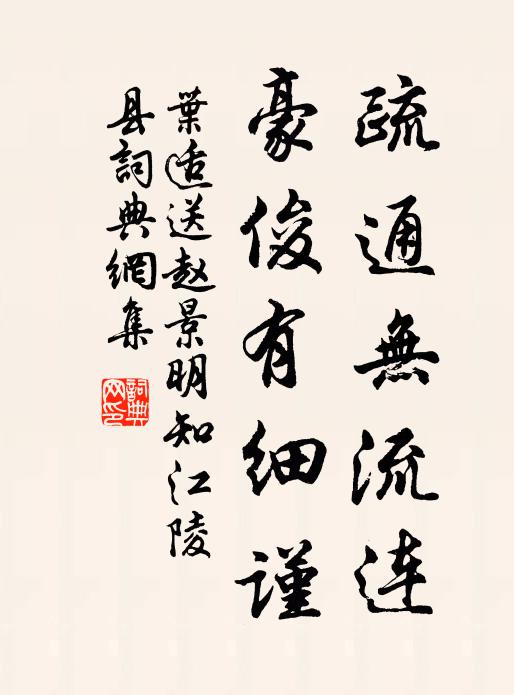 疏通無流連
豪俊有细謹
葉适送赵景明知江陵
县詞典網集
詞典网印